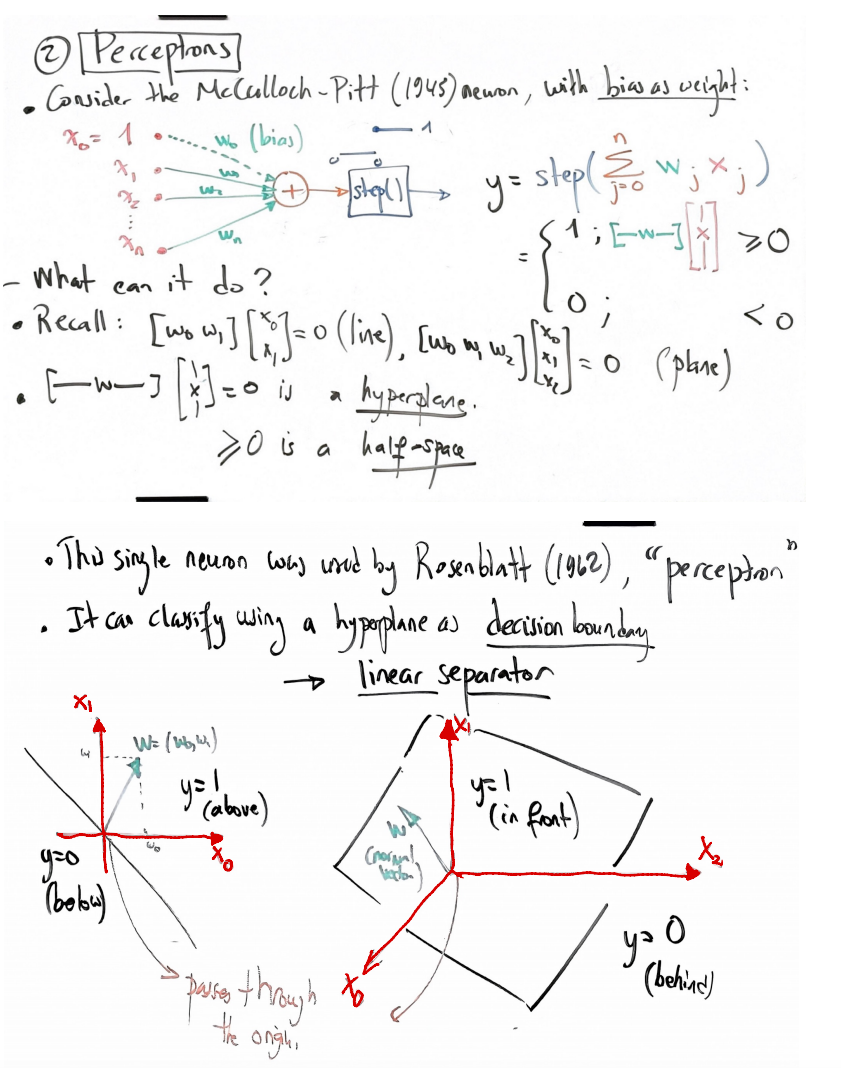 ② Perceptrons
• Consider the McCulloch-Pitt (1943) neuron, with bias as weight:
x₀ = 1
w₀ (bias)
x₁
w₁
x₂
w₂
⋮
xₙ
wₙ
+
step()
0
0
1
y = step( Σ_{j=0}^{n} w_j x_j )
= { 1 ; [—w—] [x] ⩾ 0
0 ; < 0
- What can it do?
• Recall: [w₀ w₁] [x₀ x₁] = 0 (line), [w₀ w₁ w₂] [x₀ x₁ x₂] = 0 (plane)
• [—w—] [x] = 0 is a hyperplane.
⩾ 0 is a half-space
• This single neuron was used by Rosenblatt (1962), "perceptron"
• It can classify using a hyperplane as decision boundary
→ linear separator
x₁
w₁
W = (w₀, w₁)
y=1
(above)
w₀
x₀
y=0
(below)
passes through
the origin.
x₁
y=1
(in front)
W
(normal
vector)
x₂
x₀
y = 0
(behind)